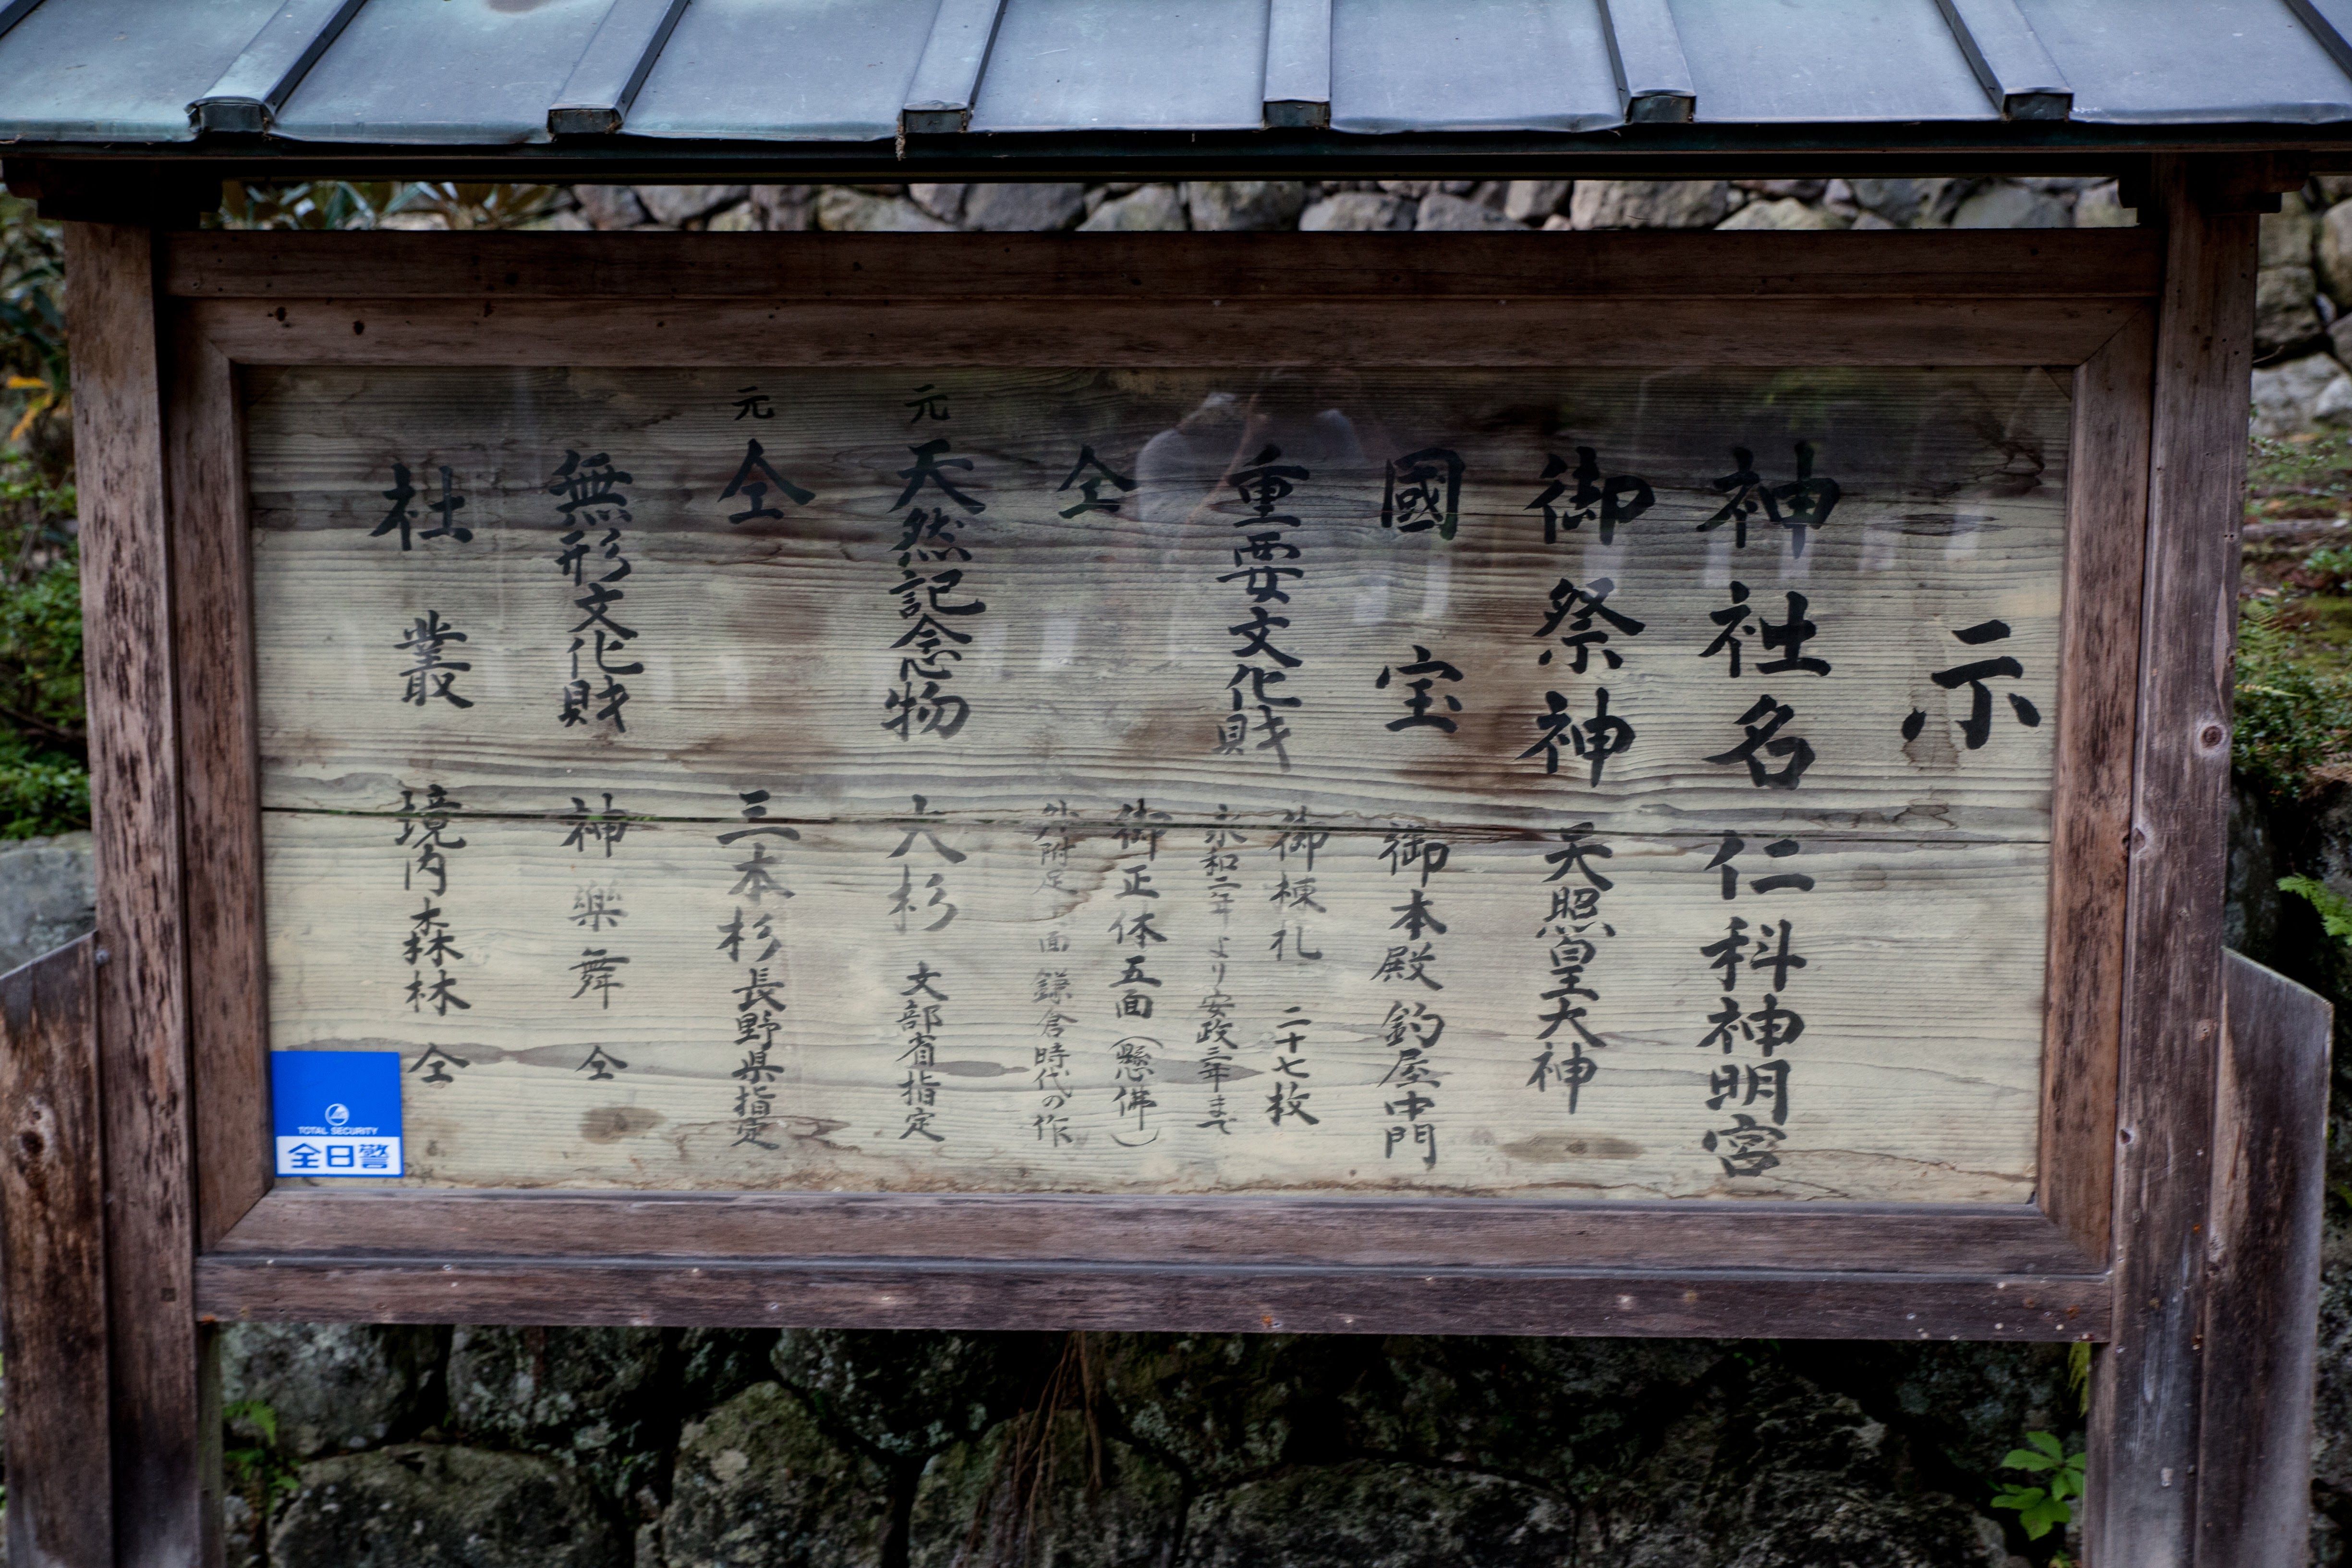 示
神社名 仁科神明宮
御祭神 天照皇大神
國宝 御本殿 釣屋 中門
重要文化財 御棟札 二十七枚
永和二年より安政三年まで
仝 御正体五面(懸佛)
外附 面 鎌倉時代の作
元天然記念物 大杉 文部省指定
元仝 三本杉 長野県指定
無形文化財 神樂舞 仝
社叢 境内森林 仝
TOTAL SECURITY
全日警